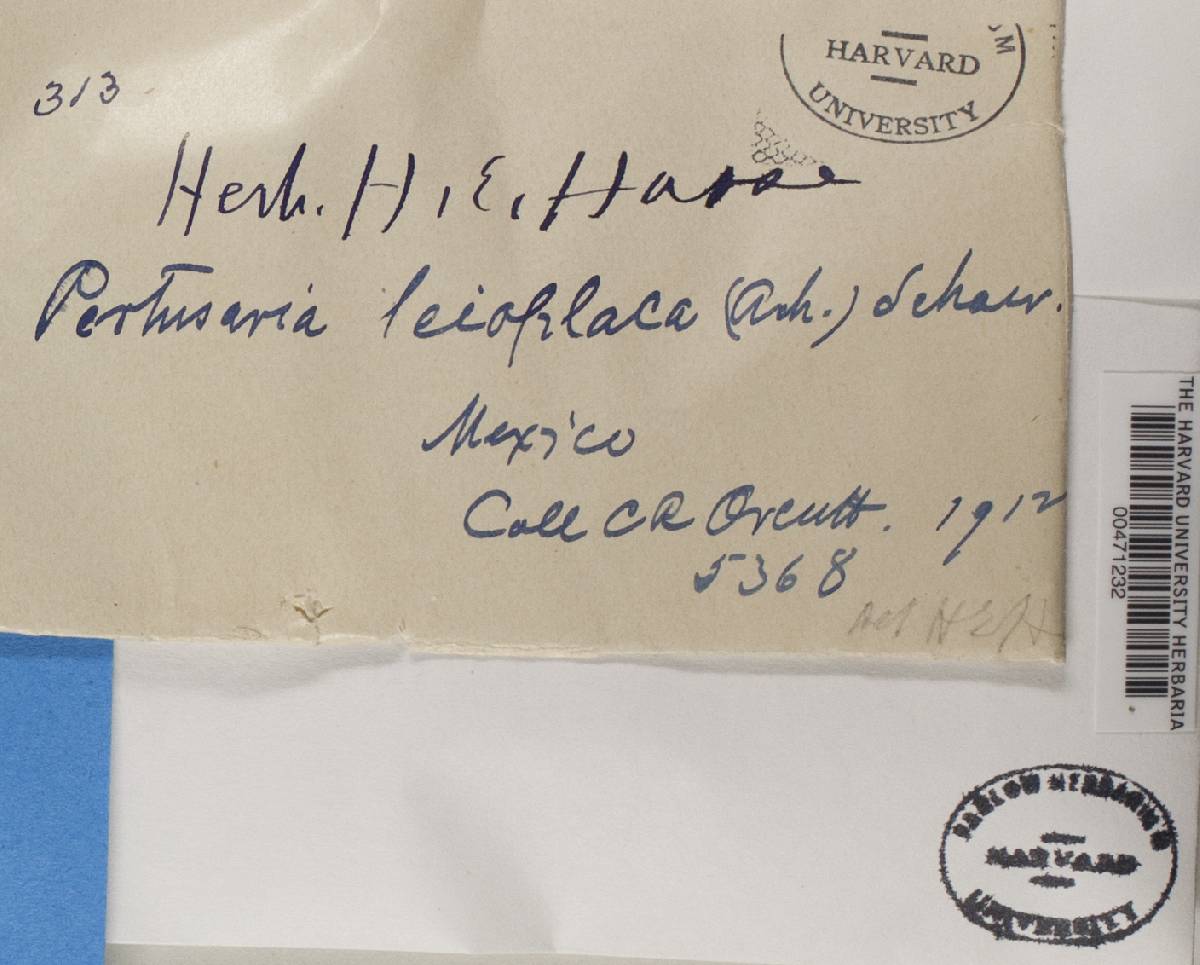 HARVARD
UNIVERSITY
313
Herb. H. E. Hasse
Pertusaria leioplaca (Ach.) Schaer.
Mexico
Coll CR Orcutt. 1912
5368
det HEH
THE HARVARD UNIVERSITY HERBARIA
00471232
FARLOW HERBARIUM
HARVARD
UNIVERSITY